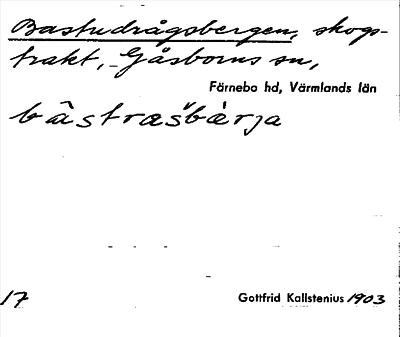 Bastudrågsbergen, skogs-
trakt, Gåsborns sn,
Färnebo hd, Värmlands län
bâstræs̆bæ̀rja
17 Gottfrid Kallstenius 1903